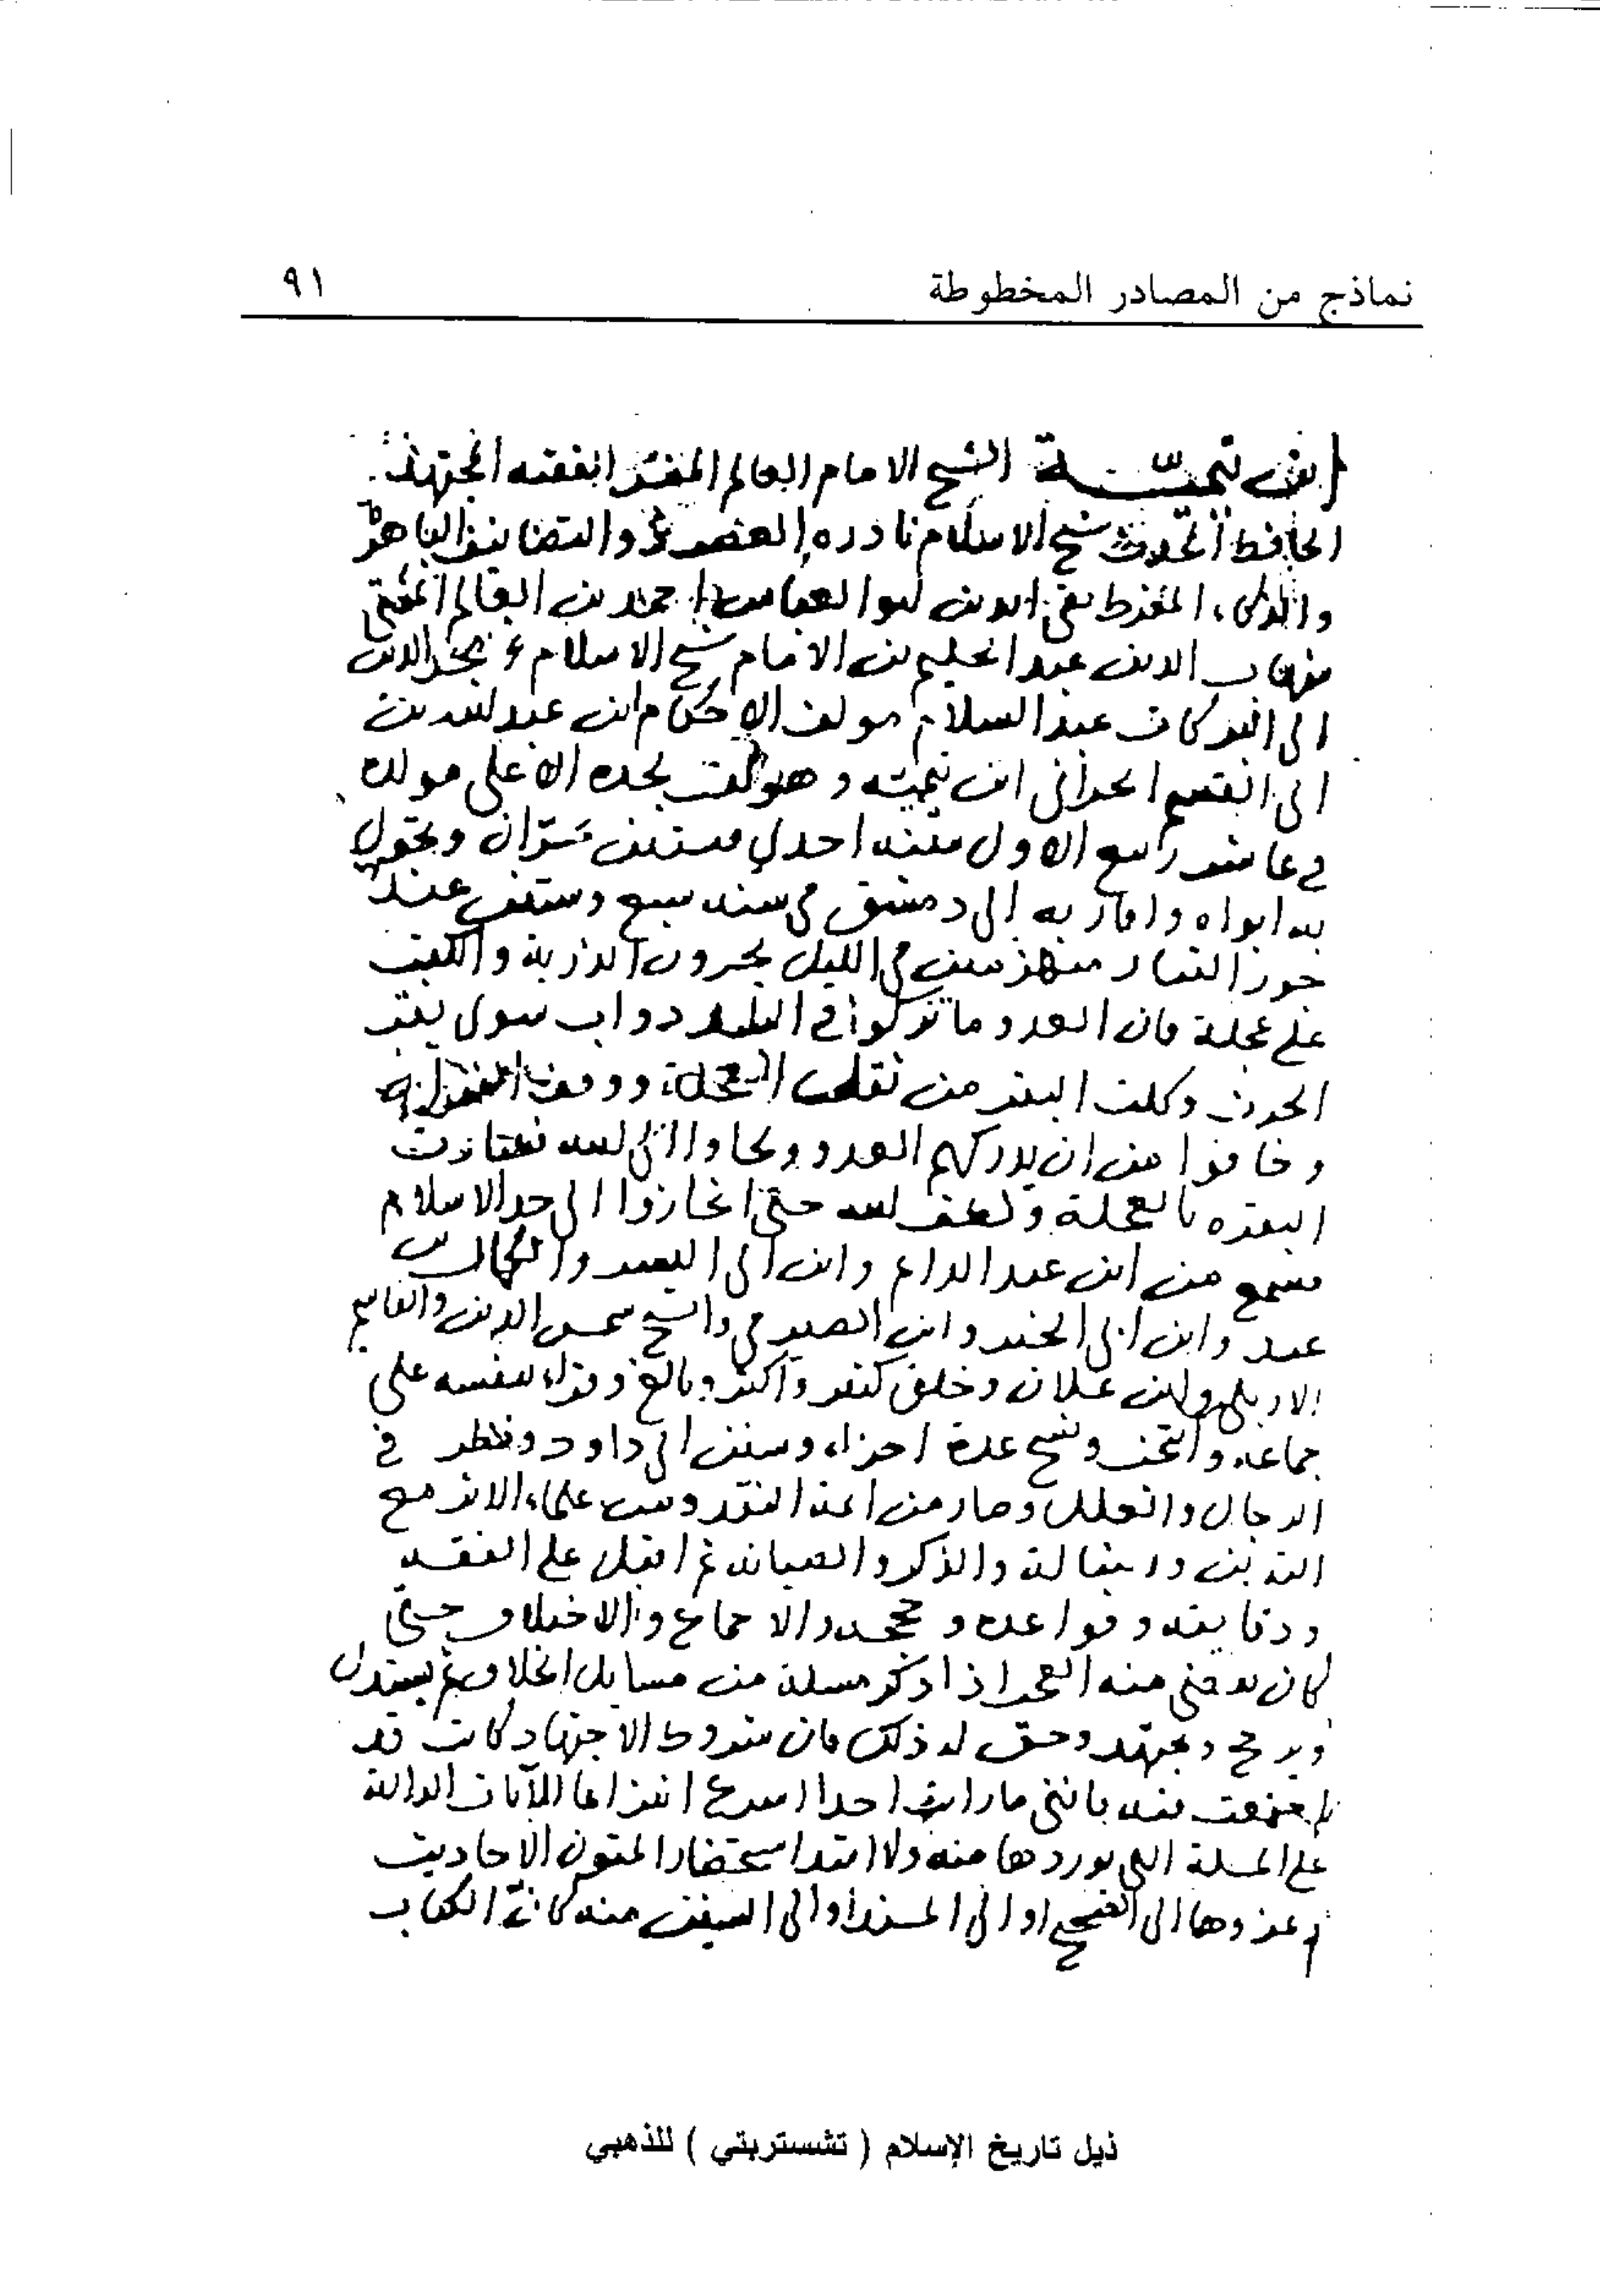 نماذج من المصادر المخطوطة ٩١
ابن تيميّـة الشيخ الامام العالم المفسر الفقيه المجتهد
الحافظ المحدث شيخ الاسلام نادره العصر ذو التصانيف الباهرة
والذكاء المفرط تقي الدين ابو العباس احمد بن العالم المفتي
شهاب الدين عبد الحليم بن الامام شيخ الاسلام مجد الدين
ابي البركات عبد السلام مولف الاحكام ابن عبد الله بن
ابي القسم الحراني ابن تيمية وهو لقب لجده الاعلى مولده
في عاشر ربيع الاول سنه احدى وستين بحران وتحول
به ابواه واقاربه الى دمشق في سنه سبع وستين عند
جور التتار منهزمين في الليل يجرون الذرية والكتب
على عجلة فان العدو ما تركوا في البلد دواب سوى بقر
الحرث وكلت البقر من ثقل العجلة ووقف
وخافوا من ان يدركهم العدو ولجاوا الى الله فسارت
البقر بالعجلة ولطف الله حتى انحازوا الى حد الاسلام
فسمع من ابن عبد الدايم وابن ابي اليسر والكمال بن
عبد وابن ابي الخير وابن الصيرفي والشيخ شمس الدين والقاسم
الاربلي وابن علان وخلق كثير واكثر وبالغ وقراء بنفسه على
جماعه وانتخب ونسخ عدة اجزاء وسنن ابي داود ونظر في
الرجال والعلل وصار من ائمة النقد ومن علماء الاثر مع
التدين والذكر والصيانه ثم اقبل على الفقه
ودقايقه وقواعده وحججه والاجماع والاختلاف حتى
كان يقضى منه العجب اذا ذكر مسلة من مسايل الخلاف ثم يستدل
ويرجح ويجتهد وحق له ذلك فان شروط الاجتهاد كانت قد
اجتمعت فيه فانني ما رايت احدا اسرع انتزاعا للآيات الدالة
على المسلة التي يوردها منه ولا اشد استحضارا لمتون الاحاديث
وعزوها الى الصحيح او الى المسند او الى السنن منه كان الكتاب
ذيل تاريخ الإسلام ( تشستربتي ) للذهبي